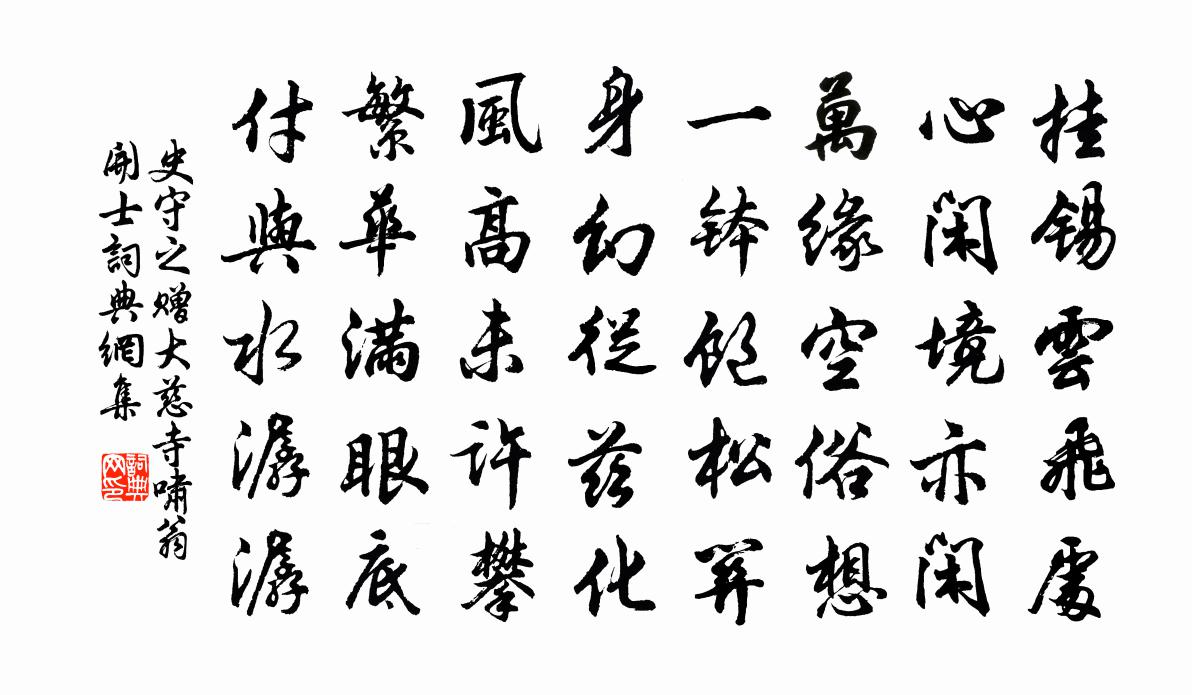 挂錫雲飛處
心閑境亦閑
萬緣空俗想
一缽飽松關
身幻從茲化
風高未許攀
繁華滿眼底
付與水潺潺
史守之贈大慈寺嘯翁
開士詞典網集
詞典
网印